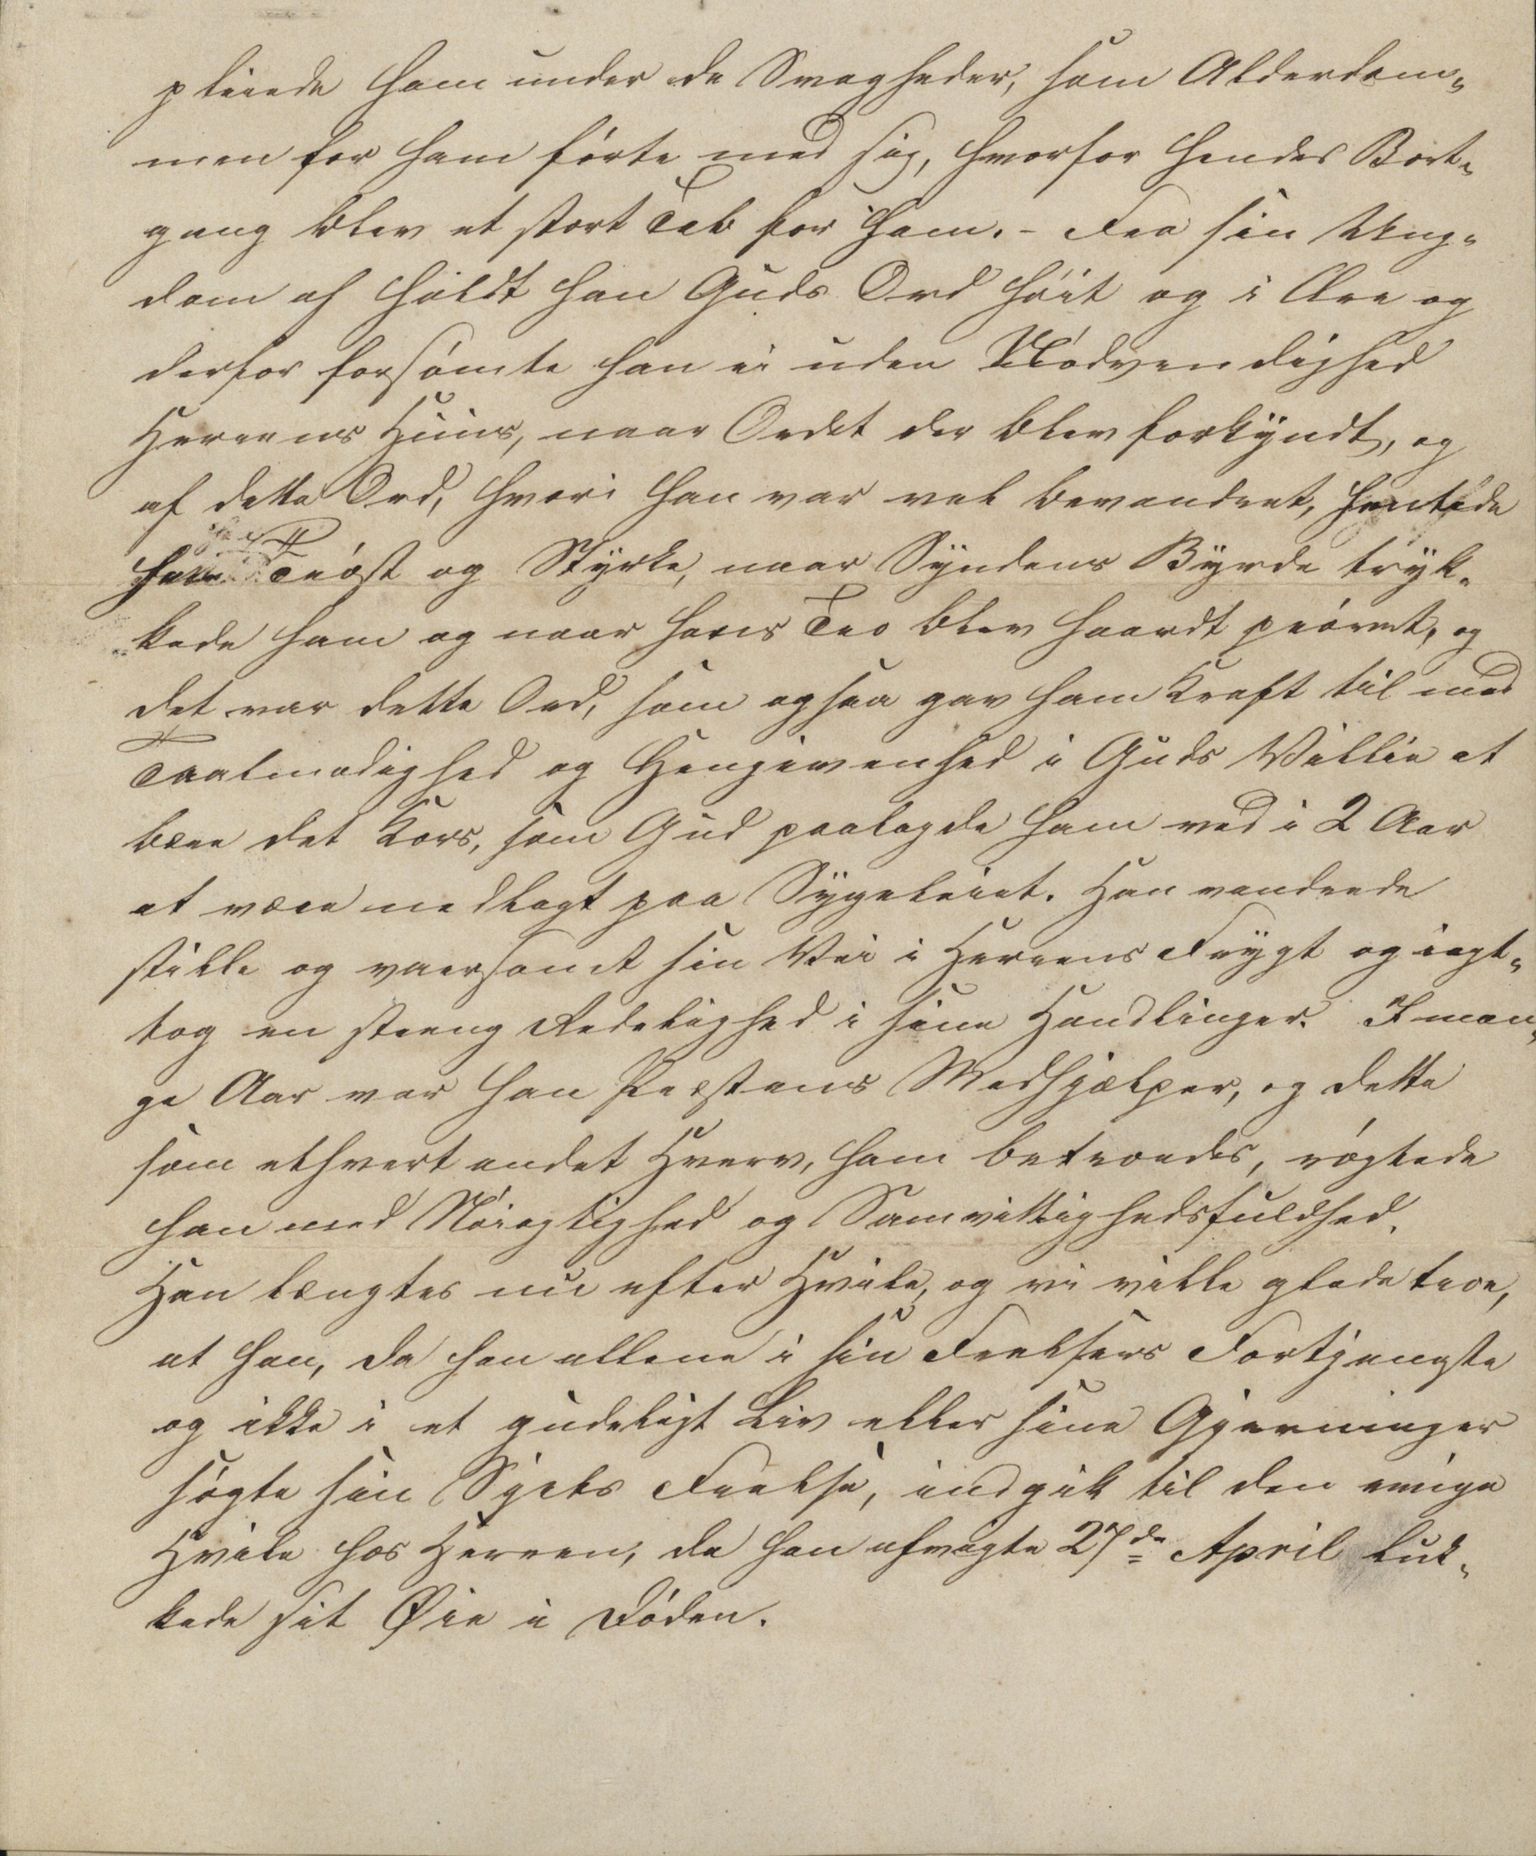 pleiede ham under de Svagheder, som Alderdom-
men for ham førte med sig, hvorfor hendes Bort-
gang blev et stort Tab for ham. - Fra sin Ung-
dom af holdt han Guds Ord høit og i Ære og
derfor forsømte han ei uden Nødvendighed
Herrens Huus, naar Ordet der blev forkyndt, og
af dette Ord, hvori han var vel bevandret, hentede
han Trøst og Styrke, naar Syndens Byrde tryk-
kede ham og naar hans Tro blev haardt prøvet, og
det var dette Ord, som ogsaa gav ham Kraft til med
Taalmodighed og Hengivenhed i Guds Villie at
bære det Kors, som Gud paalagde ham ved i 2 Aar
at være nedlagt paa Sygeleiet. Han vandrede
stille og varsomt sin Vei i Herrens Frygt og iagt-
tog en streng Redelighed i sine Handlinger. I man-
ge Aar var han Præstens Medhjælper, og dette
som ethvert andet Hverv, ham betroedes, røgtede
han med Nøiagtighed og Samvittighedsfuldhed.
Han længtes nu efter Hvile, og vi ville glade troe,
at han, da han allene i sin Frelsers Fortjeneste
og ikke i et gudeligt Liv eller sine Gjerninger
søgte sin Sjels Frelse, indgik til den evige
Hvile hos Herren, da han afvigte 27de April luk-
kede sit Øie i Døden.